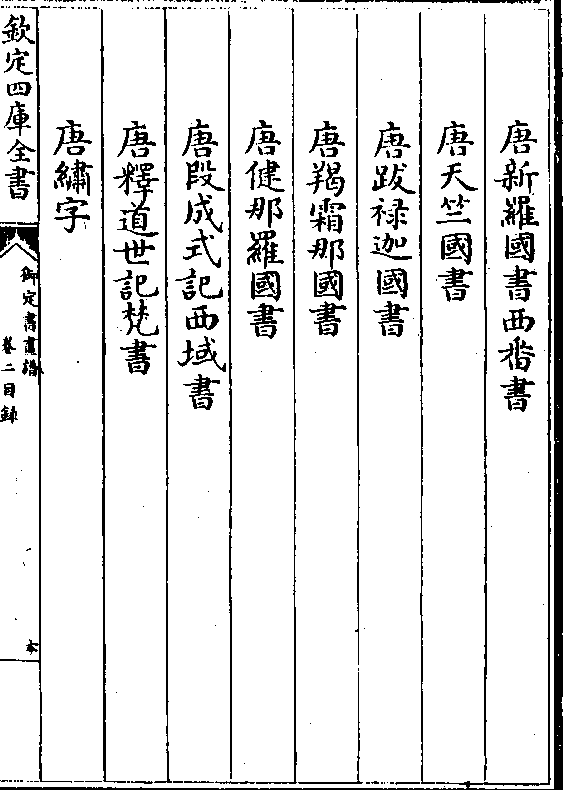 唐新羅國書西畨書
唐天竺國書
唐跋祿迦國書
唐羯霜那國書
唐健那羅國書
唐段成式記西域書
唐釋道世記梵書
唐繡字
欽定四庫全書
御定書畫譜
卷二目錄